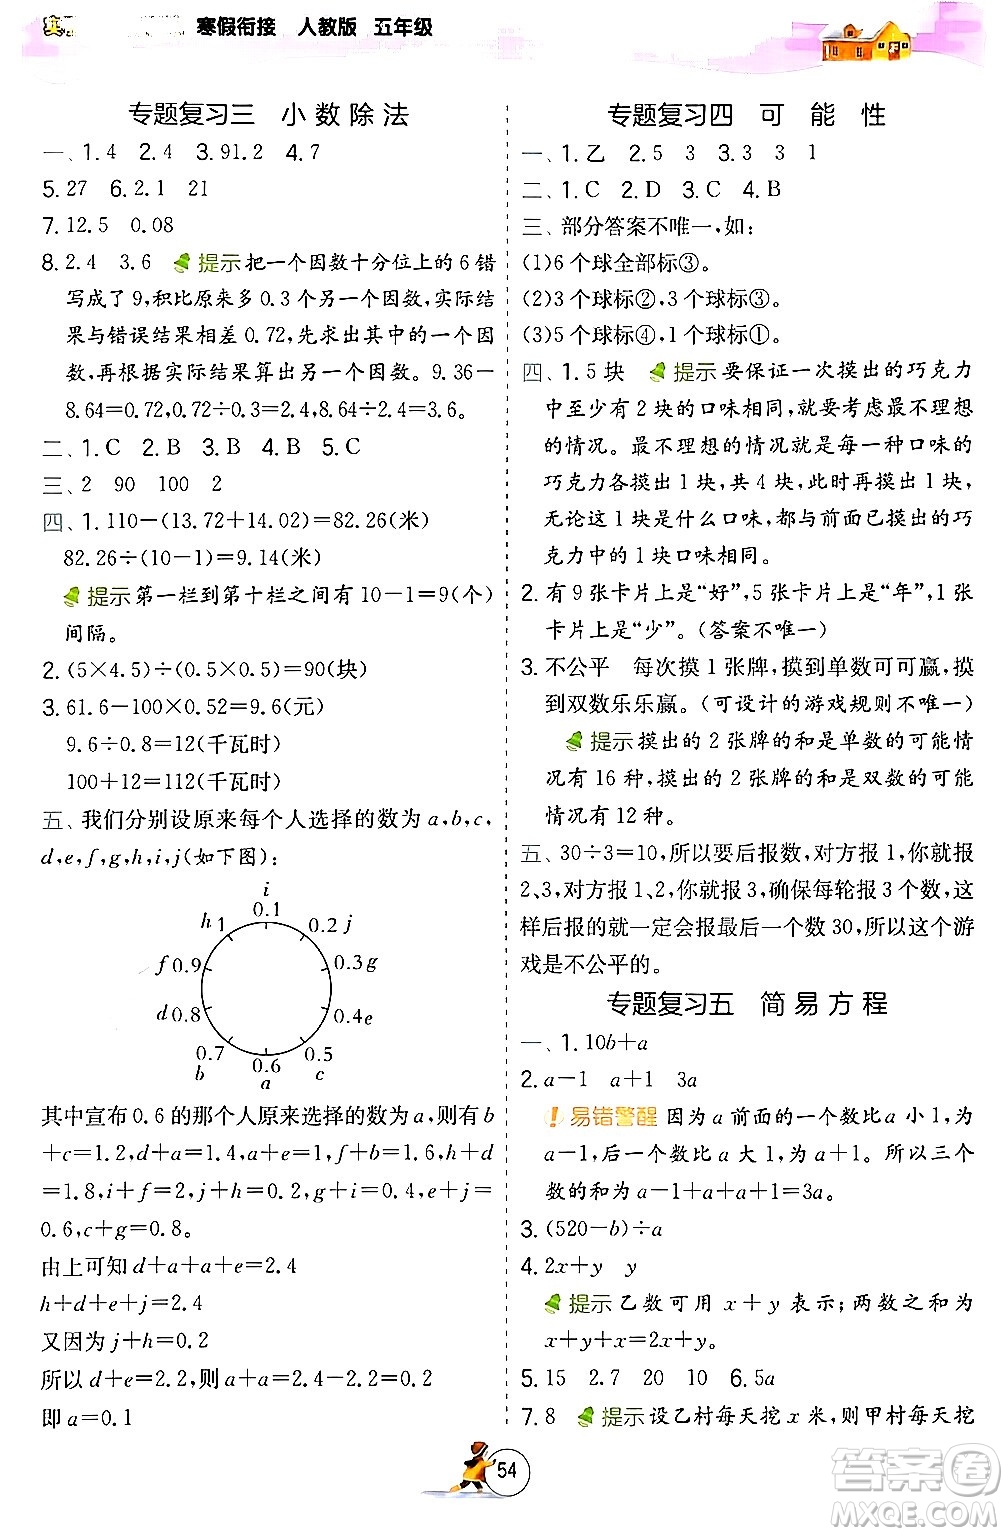 寒假衔接 人教版 五年级
专题复习三 小数除法
一、1.4 2.4 3.91.2 4.7
5.27 6.2.1 21
7.12.5 0.08
8.2.4 3.6 提示 把一个因数十分位上的6错
写成了9,积比原来多0.3个另一个因数,实际结
果与错误结果相差0.72,先求出其中的一个因
数,再根据实际结果算出另一个因数。9.36-
8.64=0.72,0.72÷0.3=2.4,8.64÷2.4=3.6。
二、1.C 2.B 3.B 4.B 5.C
三、2 90 100 2
四、1.110-(13.72+14.02)=82.26(米)
82.26÷(10-1)=9.14(米)
提示 第一栏到第十栏之间有10-1=9(个)
间隔。
2.(5×4.5)÷(0.5×0.5)=90(块)
3.61.6-100×0.52=9.6(元)
9.6÷0.8=12(千瓦时)
100+12=112(千瓦时)
五、我们分别设原来每个人选择的数为a,b,c,
d,e,f,g,h,i,j(如下图):
i
h 1 0.1 0.2 j
f 0.9 0.3 g
d 0.8 0.4 e
0.7 0.6 0.5
b a c
其中宣布0.6的那个人原来选择的数为a,则有b
+c=1.2,d+a=1.4,f+b=1.6,h+d
=1.8,i+f=2,j+h=0.2,g+i=0.4,e+j=
0.6,c+g=0.8。
由上可知d+a+a+e=2.4
h+d+e+j=2.4
又因为j+h=0.2
所以d+e=2.2,则a+a=2.4-2.2=0.2
即a=0.1
专题复习四 可能性
一、1.乙 2.5 3 3.3 3 1
二、1.C 2.D 3.C 4.B
三、部分答案不唯一,如:
(1)6个球全部标③。
(2)3个球标②,3个球标③。
(3)5个球标④,1个球标①。
四、1.5块 提示 要保证一次摸出的巧克力
中至少有2块的口味相同,要考虑最不理想
的情况。最不理想的情况是每一种口味的
巧克力各摸出1块,共4块,此时再摸出1块,
无论这1块是什么口味,都与前面已摸出的巧
克力中的1块口味相同。
2.有9张卡片上是“好”,5张卡片上是“年”,1张
卡片上是“少”。(答案不唯一)
3.不公平 每次摸1张牌,摸到单数可可赢,摸
到双数乐乐赢。(可设计的游戏规则不唯一)
提示 摸出的2张牌的和是单数的可能情
况有16种,摸出的2张牌的和是双数的可能
情况有12种。
五、30÷3=10,所以要后报数,对方报1,你就报
2、3,对方报1、2,你就报3,确保每轮报3个数,这
样后报的就一定会报最后一个数30,所以这个游
戏是不公平的。
专题复习五 简易方程
一、1.10b+a
2.a-1 a+1 3a
易错警醒 因为a前面的一个数比a小1,为
a-1,后一个数比a大1,为a+1。所以三个
数的和为a-1+a+a+1=3a。
3.(520-b)÷a
4.2x+y y
提示 乙数可用x+y表示;两数之和为
x+y+x=2x+y。
5.15 2.7 20 10 6.5a
7.8 提示 设乙村每天挖x米,则甲村每天挖
54
答案圈
MXQE.COM